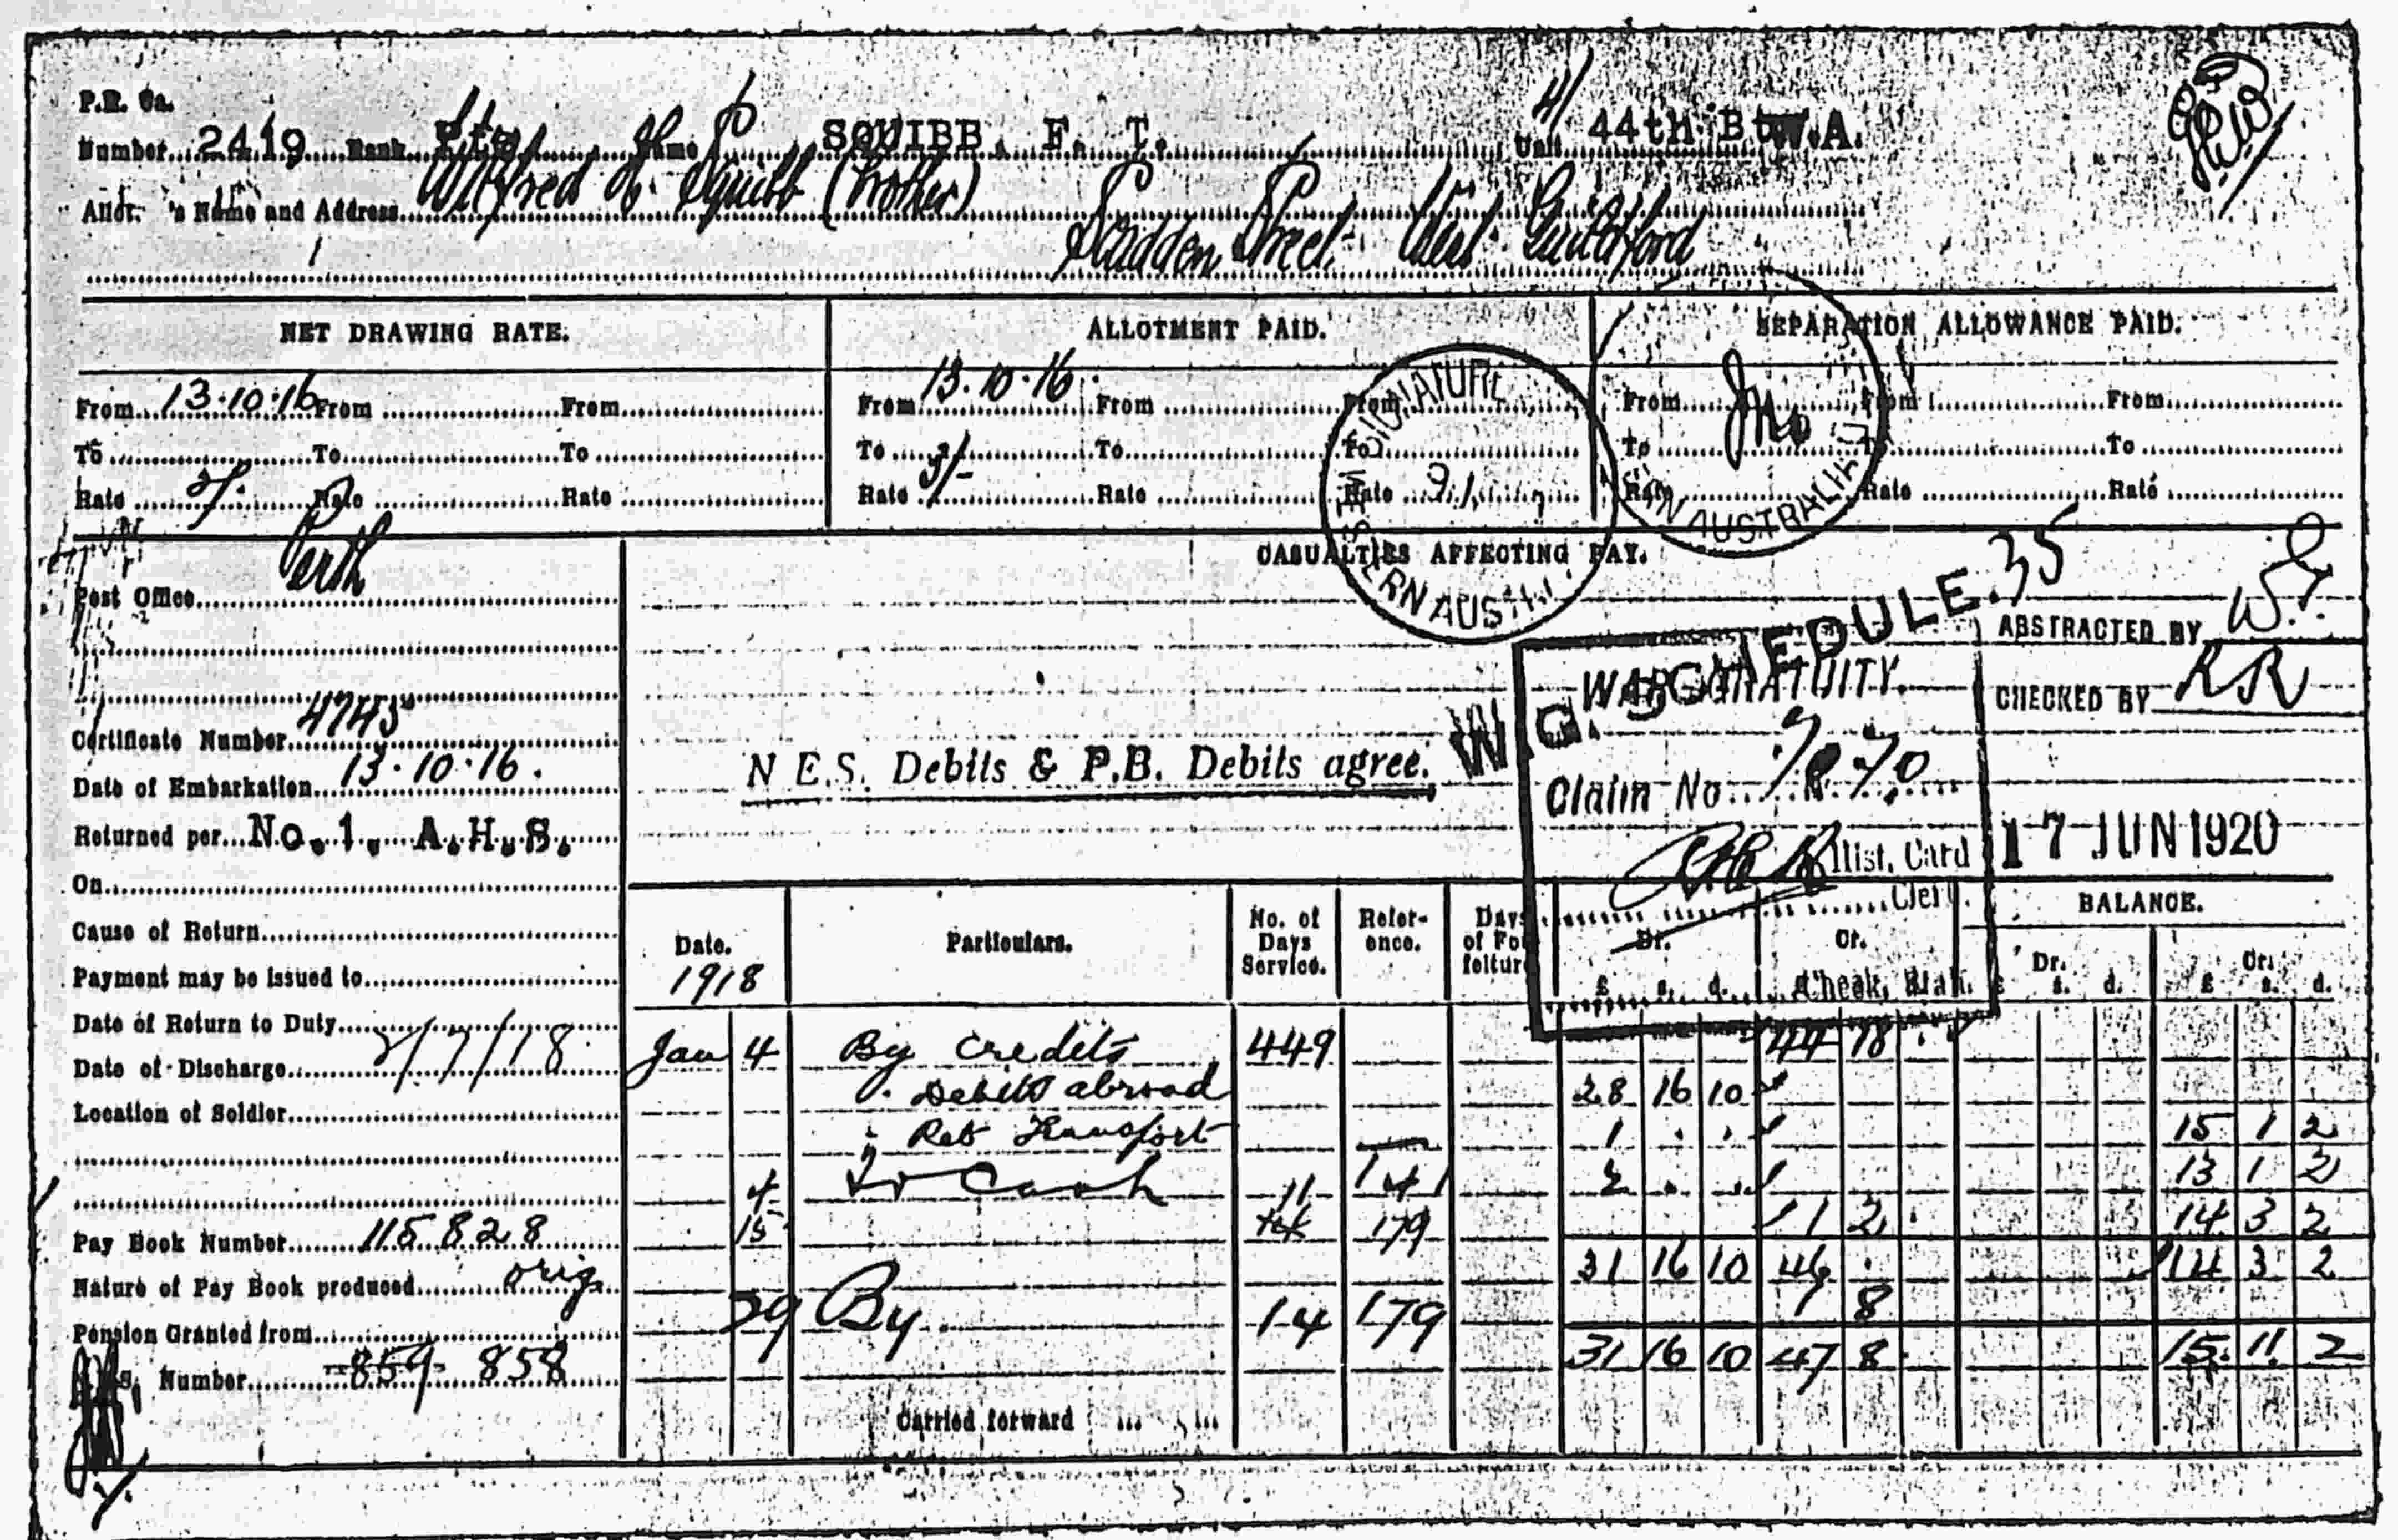 P.R. Ca.
Number 2419 Rank Pte Name SQUIBB, F. T. Unit 44th Bt W.A.
Allot. 's Name and Address Wilfred H. Squibb (brother)
Scadden Street West Guildford
NET DRAWING RATE. ALLOTMENT PAID. SEPARATION ALLOWANCE PAID.
From 13.10.16 From From From 13.10.16 From From From From From
To To To To To To To To To
Rate 2/- Rate Rate Rate 3/- Rate Rate Rate Rate Rate
WESTERN AUSTRALIA
CASUALTIES AFFECTING PAY.
Post Office Perth
W.G. SCHEDULE. 35
ABSTRACTED BY
WAR GRATUITY.
CHECKED BY RR
Certificate Number 4745
N E.S. Debits & P.B. Debits agree.
Date of Embarkation 13.10.16.
Claim No. 7870
Returned per No. 1. A.H.S.
17 JUN 1920
Hist. Card
Clerk.
On
Cause of Return
Payment may be issued to
Date of Return to Duty
Date of Discharge 2/7/18
Location of Soldier
Pay Book Number 115828
Nature of Pay Book produced orig
Pension Granted from
Number 859 858
Date. Particulars. No. of Days Service. Reference. Days of Forfeiture Dr. Cr. BALANCE.
1918 £ s. d. Dr. £ s. d. Cr. £ s. d.
Jan 4 By Credits 449 44 18 .
Debits abroad 28 16 10
Reb Transport 1 . . 15 1 2
4 To Cash 141 2 . . 13 1 2
15 11 179 1 2 . 14 3 2
31 16 10 46 . 14 3 2
29 By 14 179 1 8
31 16 10 47 8 . 15 11 2
Carried forward ... ...